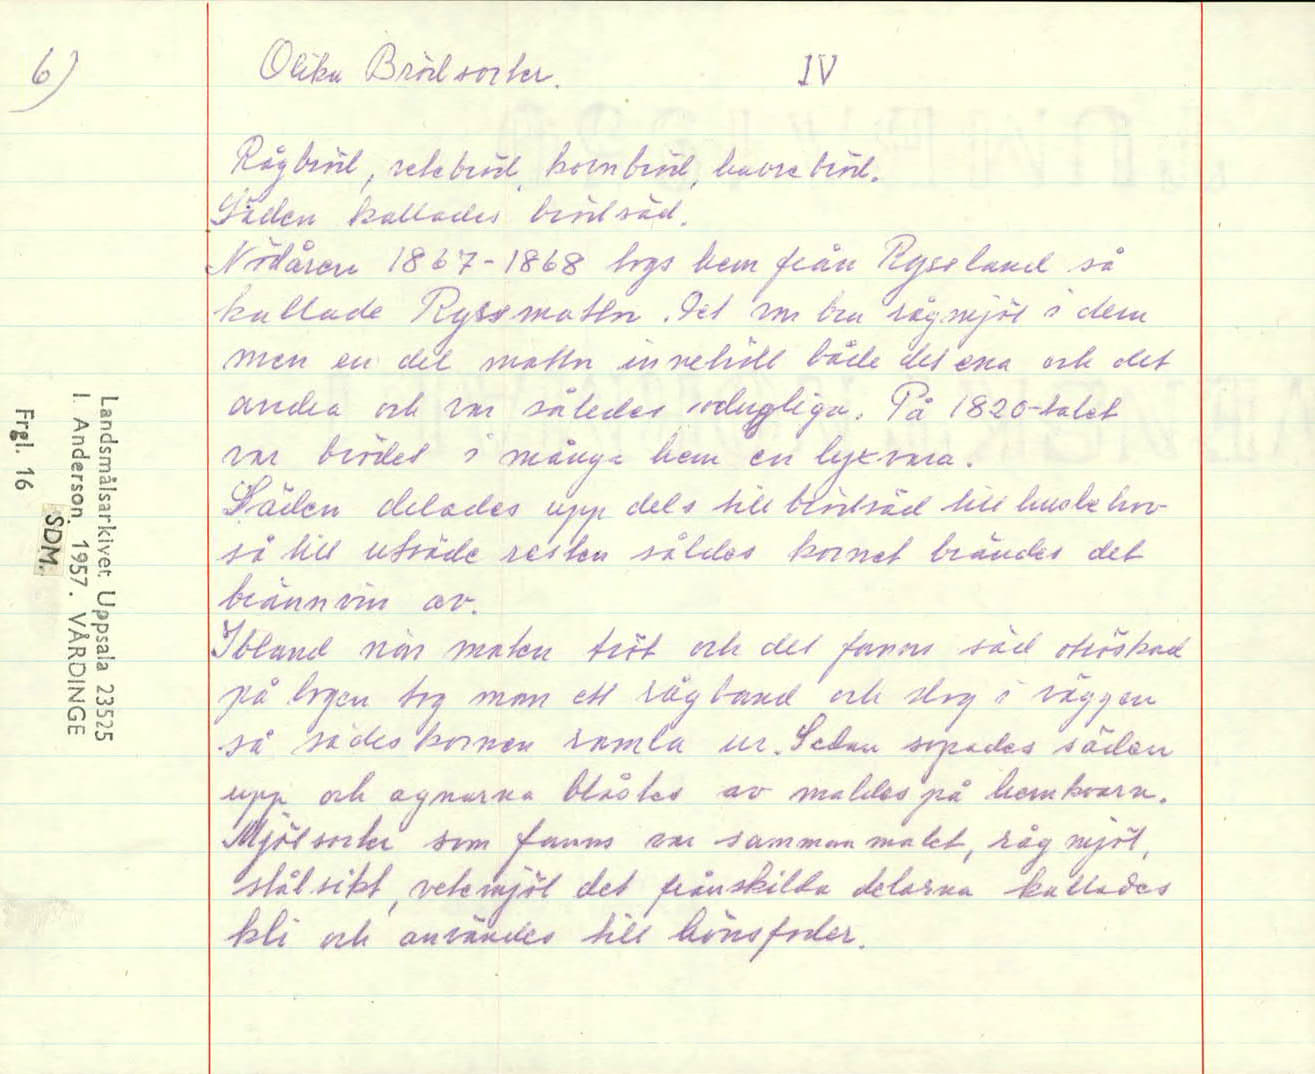 6)
Olika Brödsorter. IV
Rågbröd, vetebröd, kornbröd, havrebröd.
Säden kallades brödsäd.
Nödåren 1867-1868 togs hem från Ryssland så
kallade Ryssmattor. Det var bra rågmjöl i dem
men en del mattor innehöll både det ena och det
andra och var således odugliga. På 1820-talet
var brödet i många hem en lyxvara.
Säden delades upp dels till brödsäd till husbehov
så till utsäde resten såldes kornet brändes det
brännvin av.
Ibland när maten tröt och det fanns säd otröskad
på logen tog man ett rågband och slog i väggen
så sädeskornen ramla ur. Sedan sopades säden
upp och agnarna blåstes av maldes på hemkvarn.
Mjölsorter som fanns var sammanmalet, rågmjöl,
stålsikt, vetemjöl det frånskilda delarna kallades
kli och användes till hönsfoder.
Landsmålsarkivet Uppsala 23525
I. Anderson, 1957. VÅRDINGE
SDM.
Frgl. 16